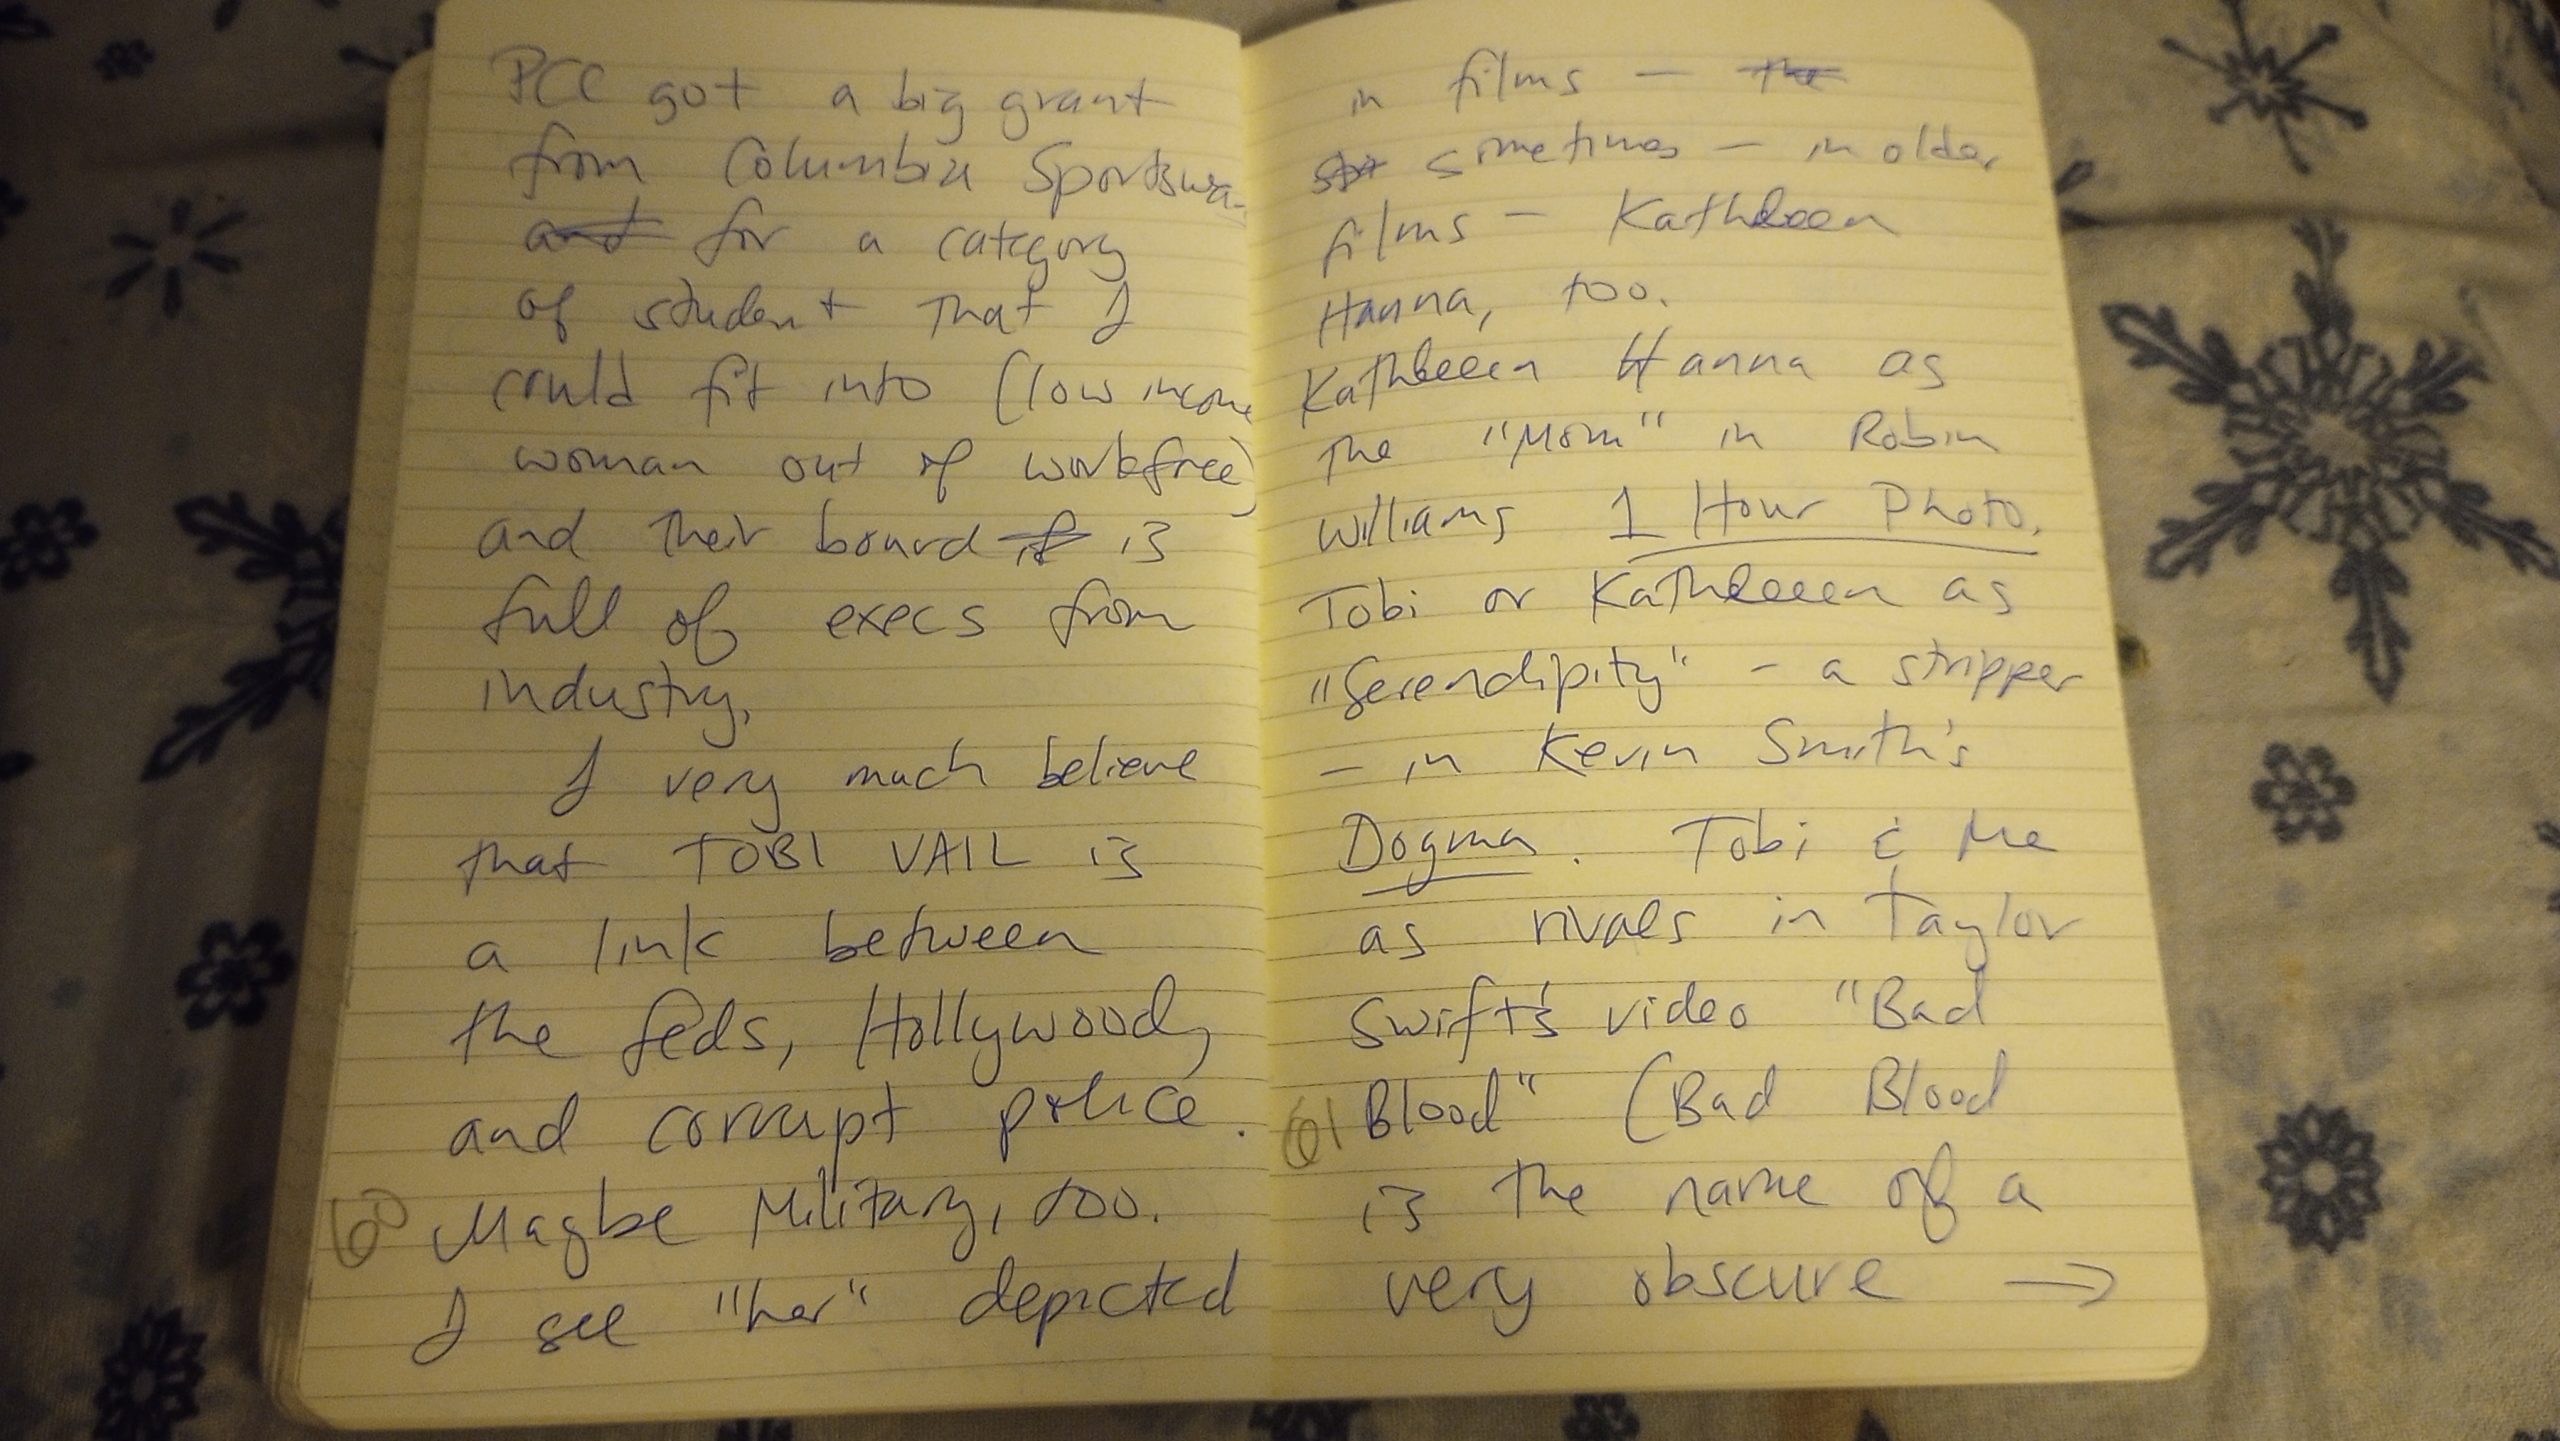 PCC got a big grant
from Columbia Sportswea
and for a category
of student that I
could fit into (low income
woman out of workfree)
and their board if is
full of execs from
industry.
I very much believe
that TOBI VAIL is
a link between
the feds, Hollywood,
and corrupt police.
60 Maybe Military, too.
I see "her" depicted
in films — the
sometimes — in older
films — Kathleen
Hanna, too.
Kathleen Hanna as
the "Mom" in Robin
Williams 1 Hour Photo.
Tobi or Kathleen as
"Serendipity" - a stripper
- in Kevin Smith's
Dogma. Tobi & Me
as rivals in Taylor
Swift's video "Bad
61 Blood" (Bad Blood
is the name of a
very obscure →